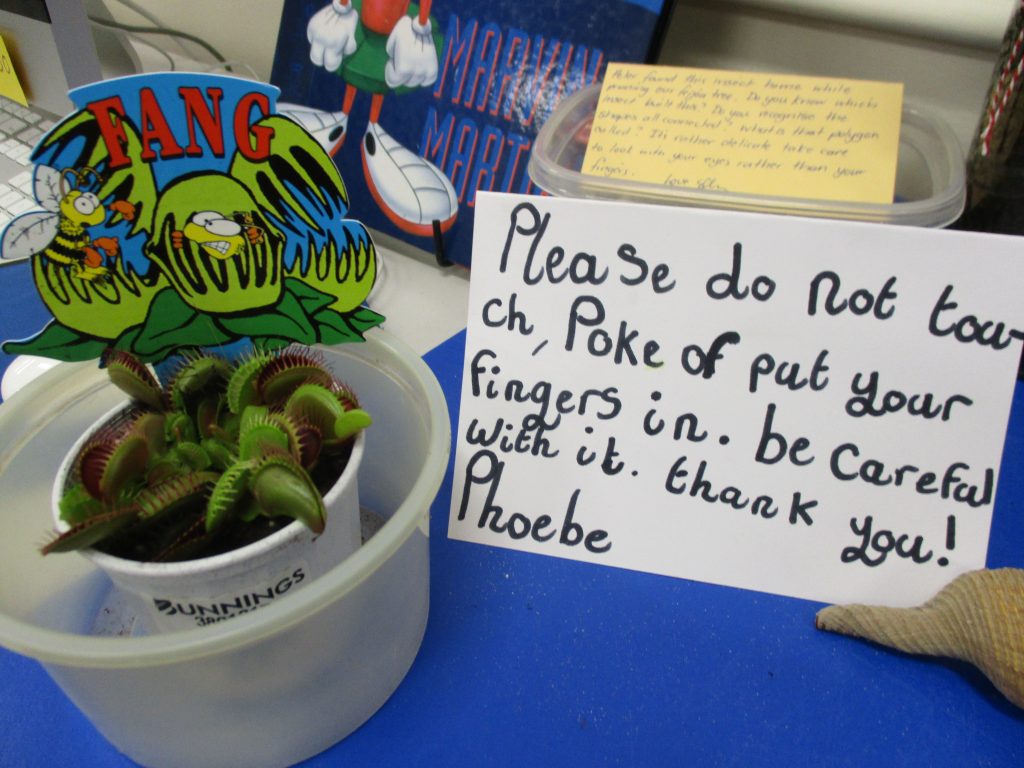 FANG
MARVIN
MART
Peter found this insect home while
pruning our frijoa tree. Do you know which
insect built this? Do you recognise the
shapes all connected? What is that polygon
called? It's rather delicate take care
to look with your eyes rather than your
fingers.
Love
Please do not tou-
ch, Poke of put your
fingers in. be careful
with it. thank you!
Phoebe
BUNNINGS